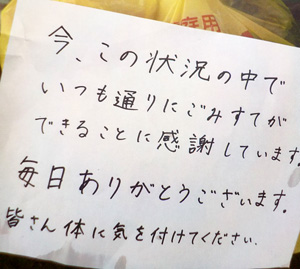 庭用
今、この状況の中で
いつも通りにごみすてが
できることに感謝しています。
毎日ありがとうございます。
皆さん体に気を付けてください。